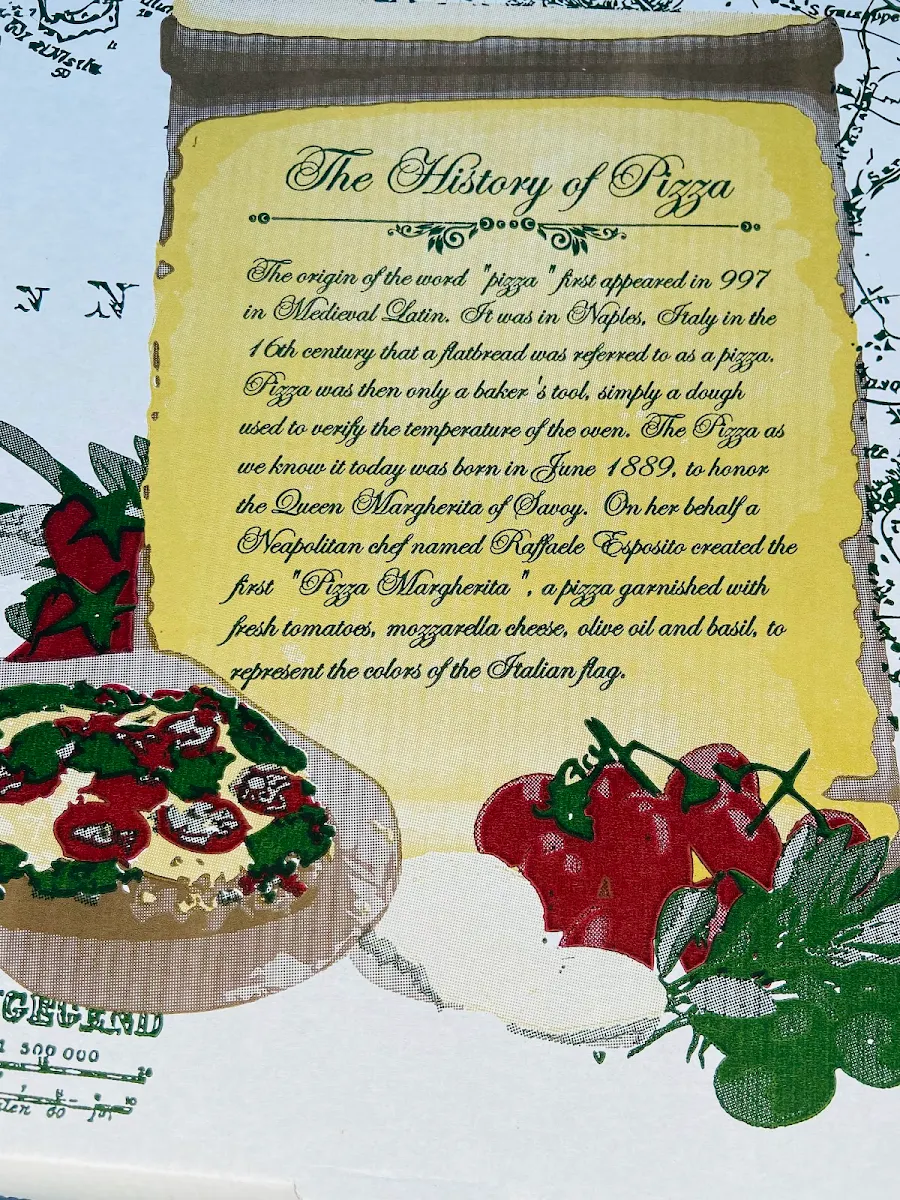 S Giuseppe
50
The History of Pizza
The origin of the word "pizza" first appeared in 997
in Medieval Latin. It was in Naples, Italy in the
16th century that a flatbread was referred to as a pizza.
Pizza was then only a baker's tool, simply a dough
used to verify the temperature of the oven. The Pizza as
we know it today was born in June 1889, to honor
the Queen Margherita of Savoy. On her behalf a
Neapolitan chef named Raffaele Esposito created the
first "Pizza Margherita", a pizza garnished with
fresh tomatoes, mozzarella cheese, olive oil and basil, to
represent the colors of the Italian flag.
GEGEND
1 500 000